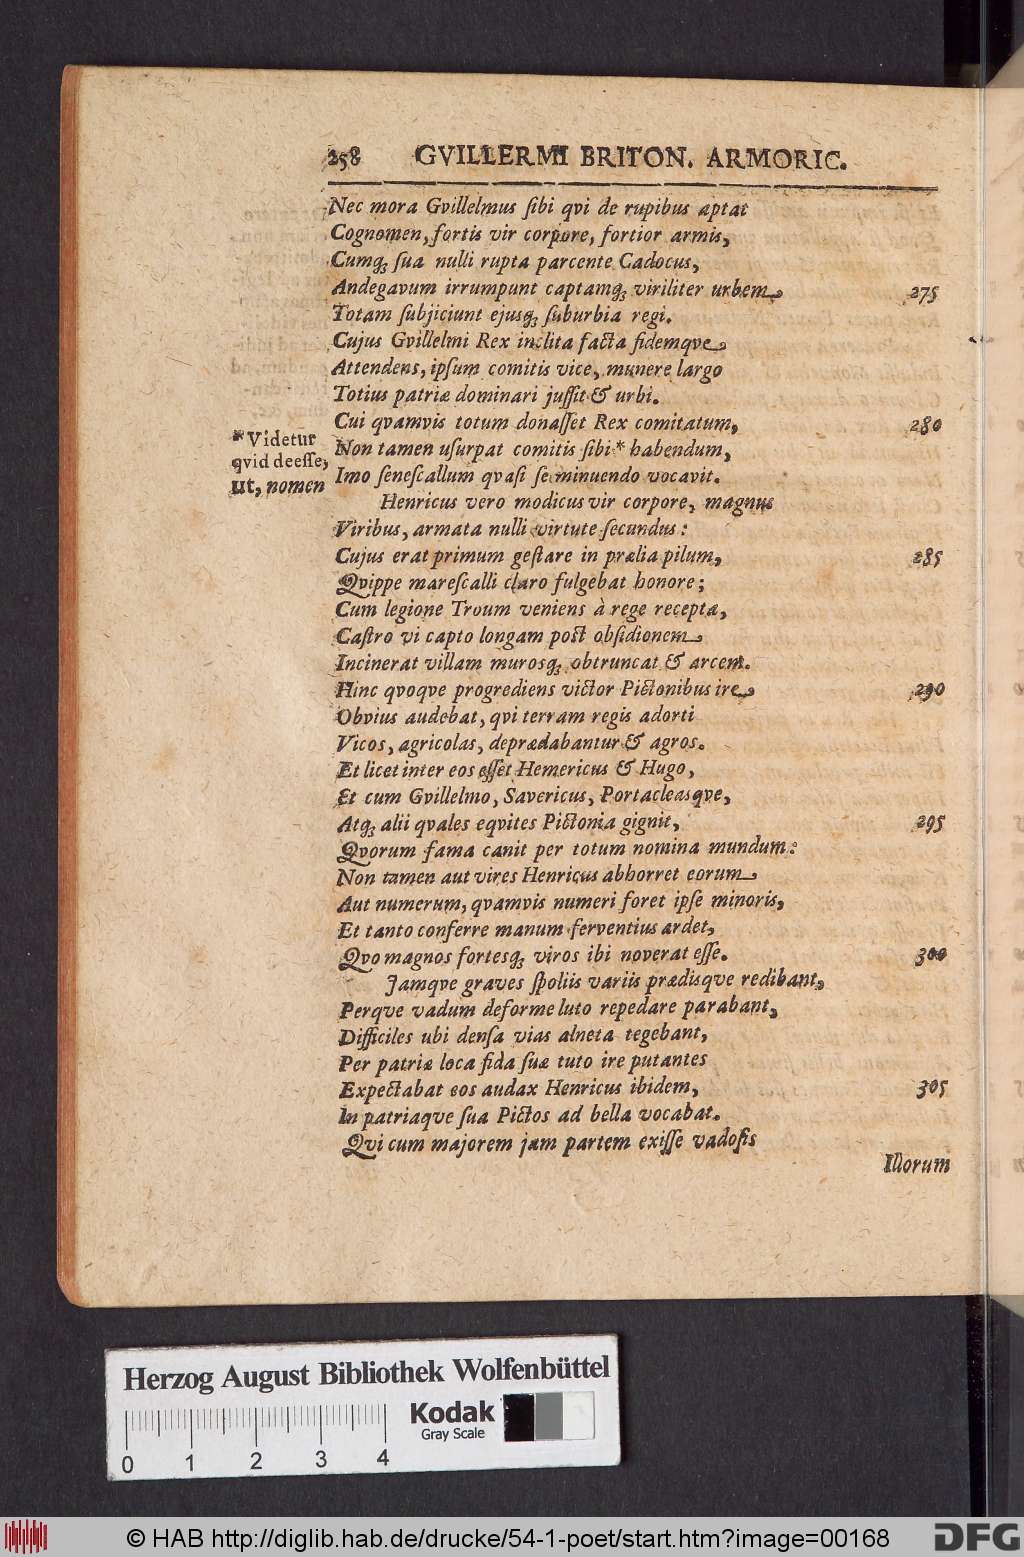 258 GVILLERMI BRITON. ARMORIC.
Nec mora Gvillelmus ſibi qvi de rupibus aptat
Cognomen, fortis vir corpore, fortior armis,
Cumqꝫ ſua nulli rupta parcente Cadocus,
Andegavum irrumpunt captamqꝫ viriliter urbem 275
Totam ſubjiciunt ejusqꝫ ſuburbia regi.
Cujus Gvillelmi Rex inclita facta fidemqve
Attendens, ipſum comitis vice, munere largo
Totius patriæ dominari juſſit & urbi.
Cui qvamvis totum donaſſet Rex comitatum, 280
* Videtur
qvid deeſſe,
ut, nomen
Non tamen uſurpat comitis ſibi * habendum,
Imo ſeneſcallum qvaſi ſe minuendo vocavit.
Henricus vero modicus vir corpore, magnus
Viribus, armata nulli virtute ſecundus:
Cujus erat primum geſtare in prælia pilum, 285
Qvippe mareſcalli claro fulgebat honore;
Cum legione Trvum veniens à rege recepta,
Caſtro vi capto longam poſt obſidionem
Incinerat villam murosqꝫ obtruncat & arcem.
Hinc qvoqve progrediens victor Pictonibus ire 290
Obvius audebat, qvi terram regis adorti
Vicos, agricolas, deprædabantur & agros.
Et licet inter eos eſſet Hemericus & Hugo,
Et cum Gvillelmo, Savericus, Portacleasqve,
Atqꝫ alii qvales eqvites Pictonia gignit, 295
Qvorum fama canit per totum nomina mundum:
Non tamen aut vires Henricus abhorret eorum
Aut numerum, qvamvis numeri foret ipſe minoris,
Et tanto conferre manum ferventius ardet,
Qvo magnos fortesqꝫ viros ibi noverat eſſe. 300
Jamqve graves ſpoliis variis prædisqve redibant,
Perqve vadum deforme luto repedare parabant,
Difficiles ubi denſa vias alneta tegebant,
Per patriæ loca fida ſuæ tuto ire putantes
Expectabat eos audax Henricus ibidem, 305
In patriaqve ſua Pictos ad bella vocabat.
Qvi cum majorem jam partem exiſſe vadoſis
Illorum
Herzog August Bibliothek Wolfenbüttel
Kodak
Gray Scale
0 1 2 3 4
© HAB http://diglib.hab.de/drucke/54-1-poet/start.htm?image=00168
DFG